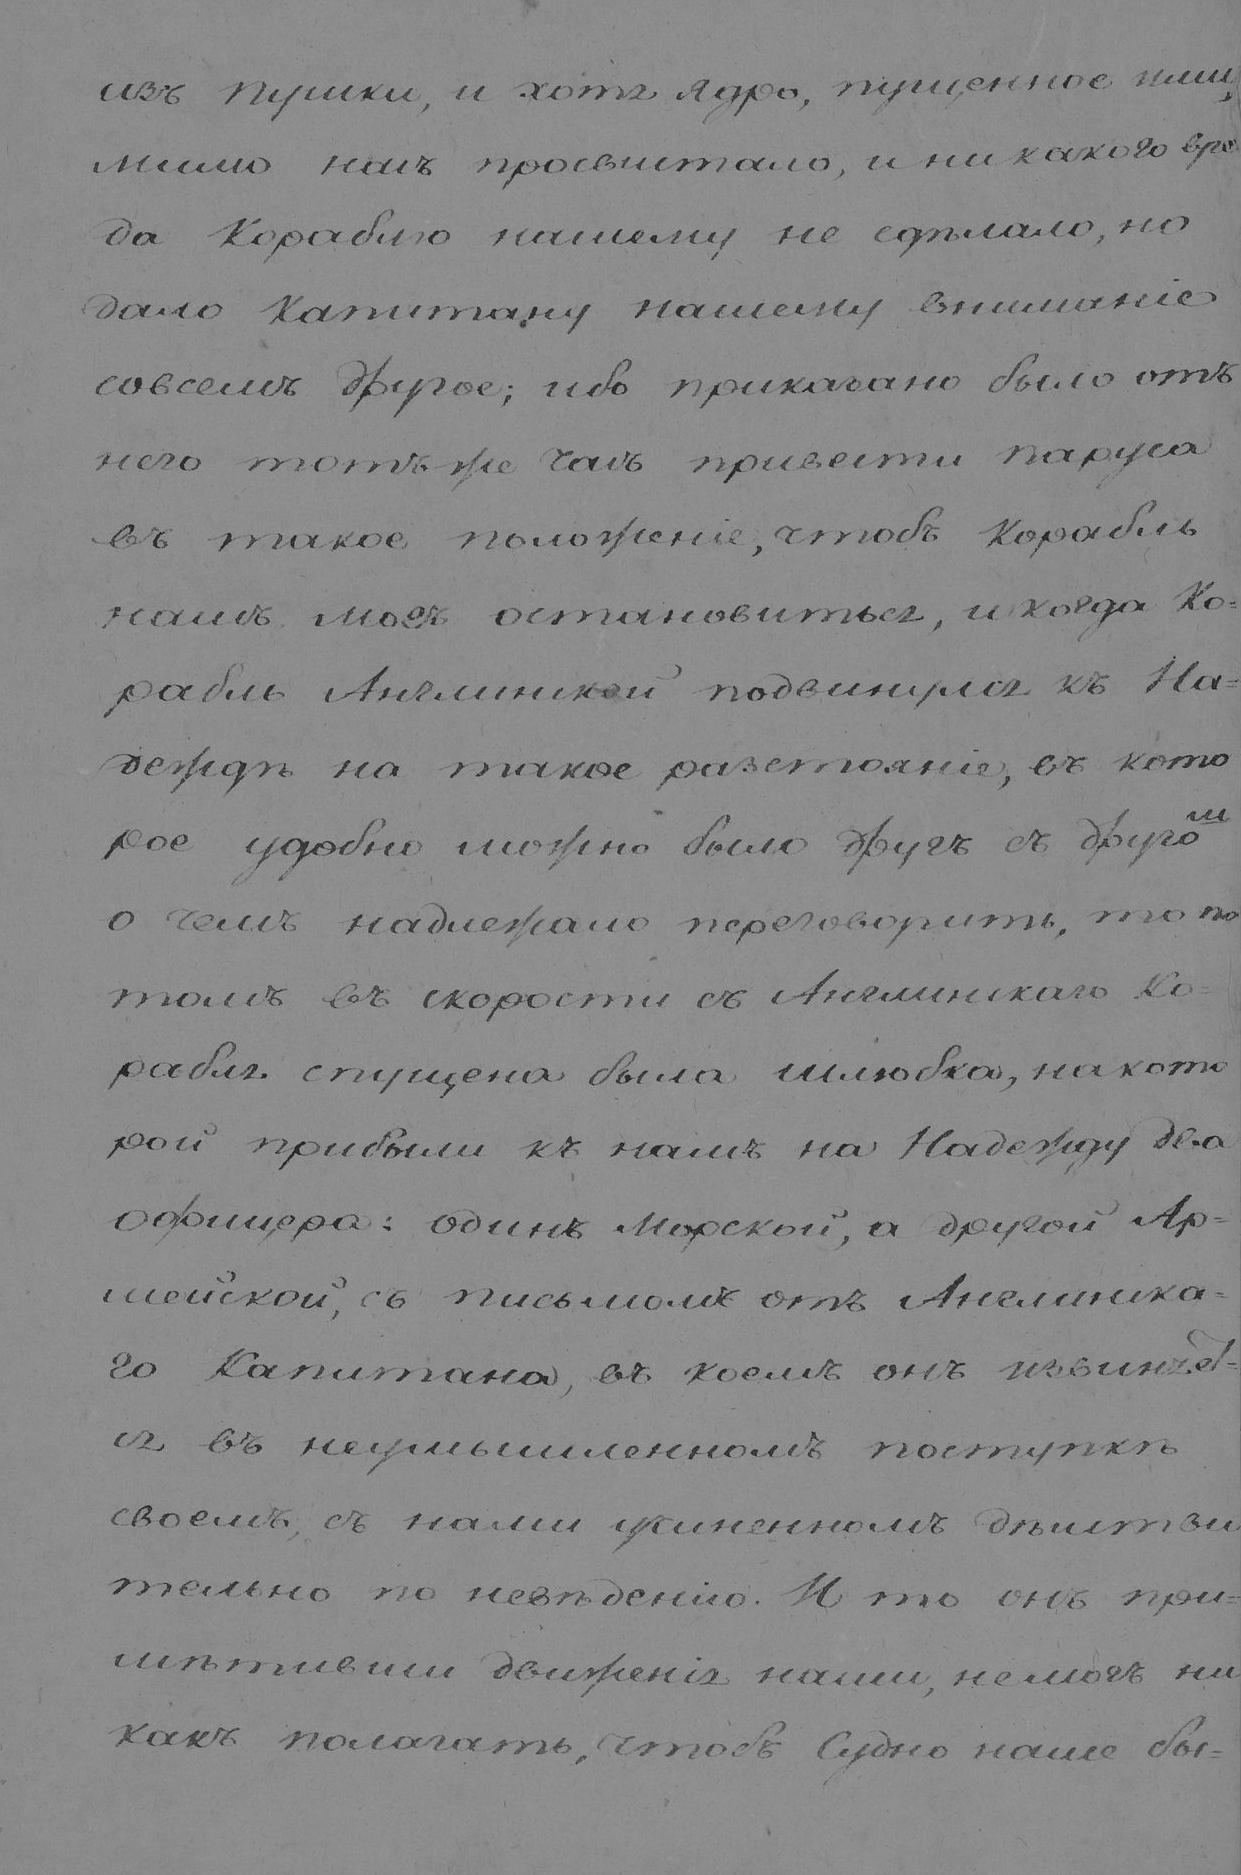 изъ пушки, и хотя ядро, пущенное ими,
мимо насъ просвистало, и ни какого вре
да Кораблю нашему не сдѣлало, но
дало Капитану нашему вниманіе
совсемъ другое; ибо приказано было отъ
него тотъ же часъ привести паруса
въ такое положеніе, чтобъ Корабль
нашъ могъ остановиться, и когда Ко=
рабль Англинской подвинулся къ На=
деждѣ на такое разстояніе, въ кото
рое удобно можно было другъ съ другом
о чемъ надлежало переговорить, то по
томъ въ скорости съ Англинскаго Ко=
рабля спущена была шлюбка, на кото
рой прибыли къ намъ на Надежду два
офицера: одинъ Морской, а другой Ар=
мейской, съ письмомъ отъ Англинска=
го Капитана, въ коемъ онъ извинялъ=
ся въ неумышленномъ поступкѣ
своемъ, съ нами учиненномъ дѣиства
тельно по невѣденію. И то онъ при=
мѣтивши движенія наши, немогъ ни
какъ полагать, чтобъ Судно наше бы=